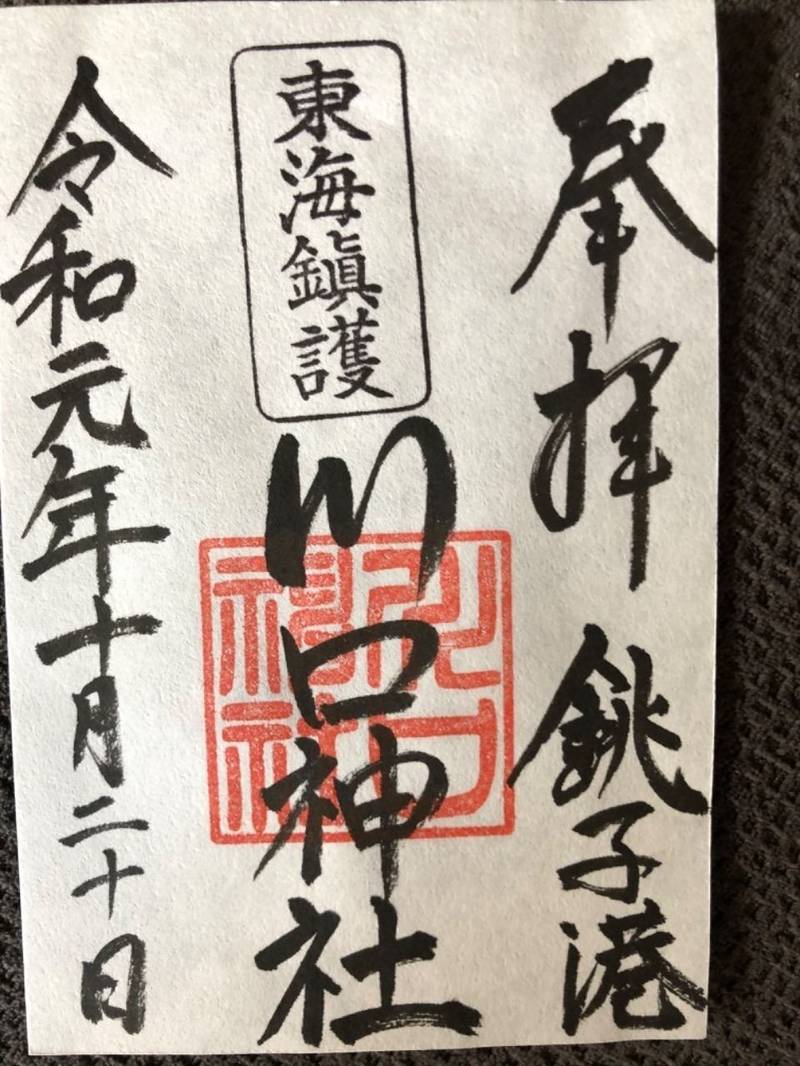 奉拝 銚子港
東海鎮護
川口神社
川口神社
令和元年十月二十日